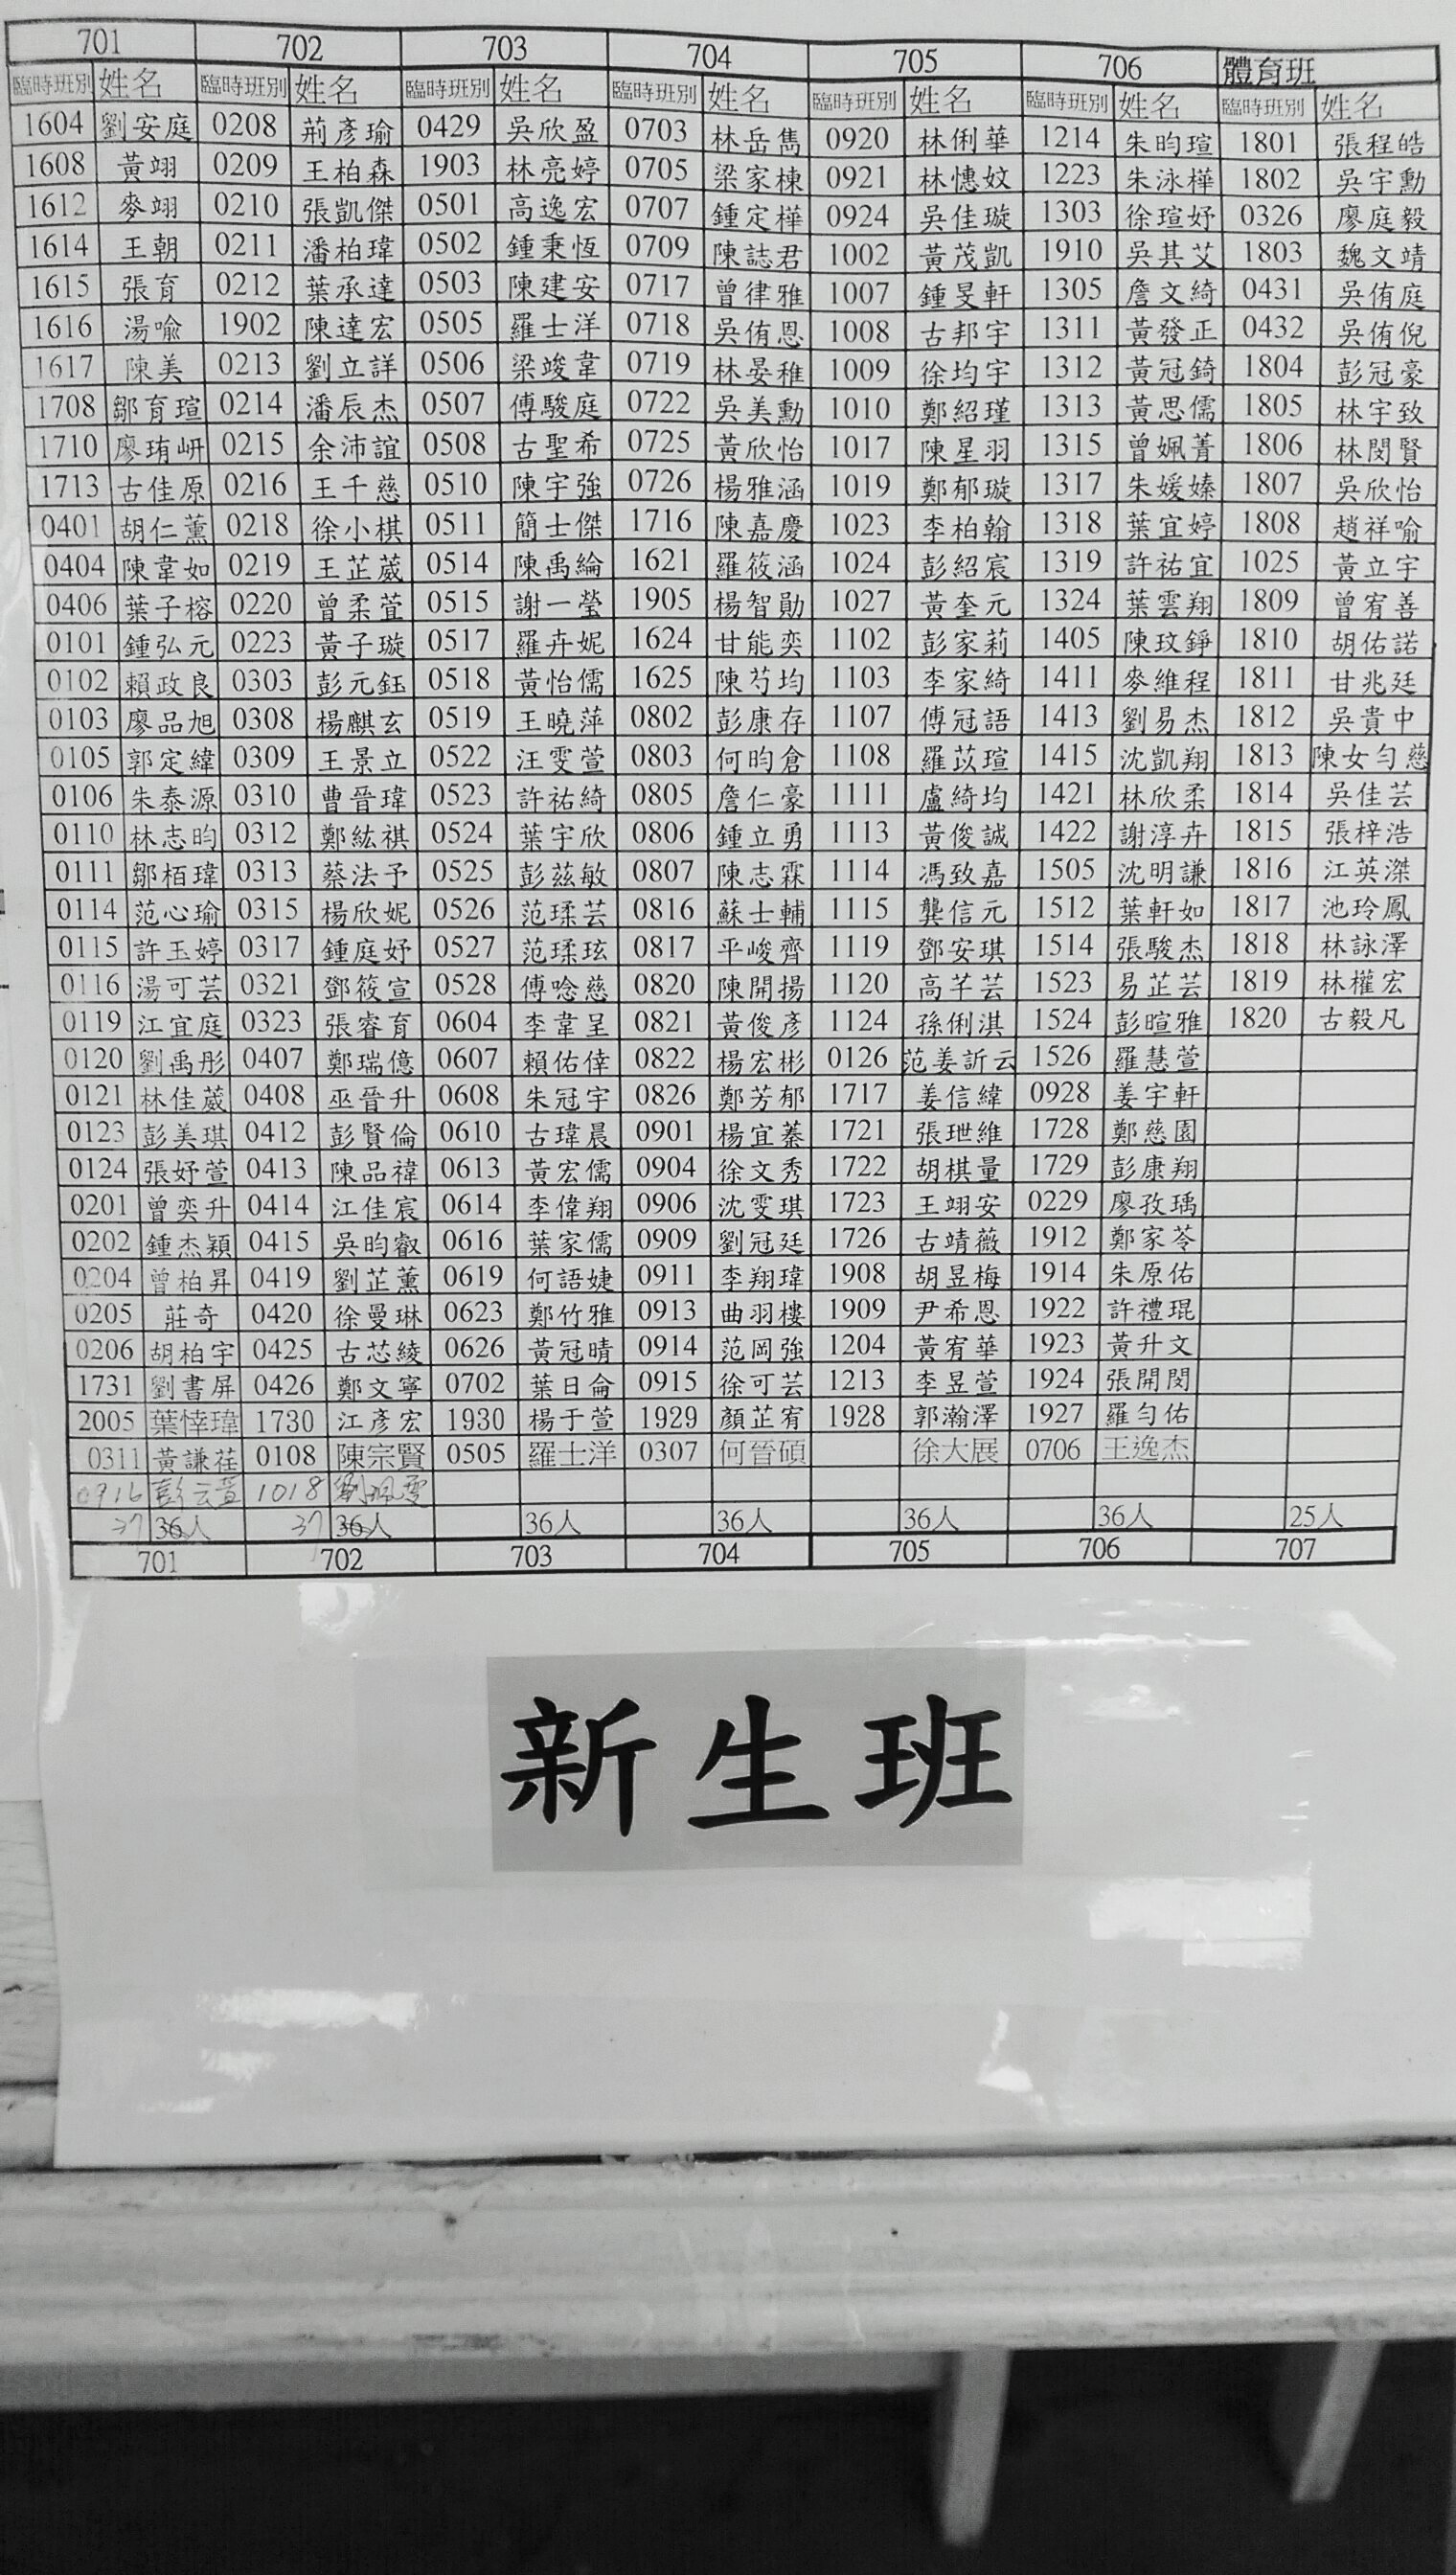 701 702 703 704 705 706 體育班
臨時班別 姓名 臨時班別 姓名 臨時班別 姓名 臨時班別 姓名 臨時班別 姓名 臨時班別 姓名 臨時班別 姓名
1604 劉安庭 0208 荊彥瑜 0429 吳欣盈 0703 林岳雋 0920 林俐華 1214 朱昀瑄 1801 張程皓
1608 黃翊 0209 王柏森 1903 林亮婷 0705 梁家棟 0921 林憓妏 1223 朱泳樺 1802 吳宇勳
1612 麥翊 0210 張凱傑 0501 高逸宏 0707 鍾定樺 0924 吳佳璇 1303 徐瑄妤 0326 廖庭毅
1614 王朝 0211 潘柏瑋 0502 鍾秉恆 0709 陳誌君 1002 黃茂凱 1910 吳其艾 1803 魏文靖
1615 張育 0212 葉承達 0503 陳建安 0717 曾律雅 1007 鍾旻軒 1305 詹文綺 0431 吳侑庭
1616 湯喻 1902 陳達宏 0505 羅士洋 0718 吳侑恩 1008 古邦宇 1311 黃發正 0432 吳侑倪
1617 陳美 0213 劉立詳 0506 梁竣韋 0719 林晏稚 1009 徐均宇 1312 黃冠錡 1804 彭冠豪
1708 鄒育瑄 0214 潘辰杰 0507 傅駿庭 0722 吳美勳 1010 鄭紹瑾 1313 黃思儒 1805 林宇致
1710 廖珛岍 0215 余沛誼 0508 古聖希 0725 黃欣怡 1017 陳星羽 1315 曾姵菁 1806 林閔賢
1713 古佳原 0216 王千慈 0510 陳宇強 0726 楊雅涵 1019 鄭郁璇 1317 朱媛嫀 1807 吳欣怡
0401 胡仁薰 0218 徐小棋 0511 簡士傑 1716 陳嘉慶 1023 李柏翰 1318 葉宜婷 1808 趙祥喻
0404 陳韋如 0219 王芷葳 0514 陳禹綸 1621 羅筱涵 1024 彭紹宸 1319 許祐宜 1025 黃立宇
0406 葉子榕 0220 曾柔萓 0515 謝一瑩 1905 楊智勛 1027 黃奎元 1324 葉雲翔 1809 曾宥善
0101 鍾弘元 0223 黃子璇 0517 羅卉妮 1624 甘能奕 1102 彭家莉 1405 陳玟錚 1810 胡佑諾
0102 賴政良 0303 彭元鈺 0518 黃怡儒 1625 陳芍均 1103 李家綺 1411 麥維程 1811 甘兆廷
0103 廖品旭 0308 楊麒玄 0519 王曉萍 0802 彭康存 1107 傅冠語 1413 劉易杰 1812 吳貴中
0105 郭定緯 0309 王景立 0522 汪雯萱 0803 何昀倉 1108 羅苡瑄 1415 沈凱翔 1813 陳女勻慈
0106 朱泰源 0310 曹晉瑋 0523 許祐綺 0805 詹仁豪 1111 盧綺均 1421 林欣柔 1814 吳佳芸
0110 林志昀 0312 鄭紘祺 0524 葉宇欣 0806 鍾立勇 1113 黃俊誠 1422 謝淳卉 1815 張梓浩
0111 鄒栢瑋 0313 蔡法予 0525 彭茲敏 0807 陳志霖 1114 馮致嘉 1505 沈明謙 1816 江英滐
0114 范心瑜 0315 楊欣妮 0526 范瑈芸 0816 蘇士輔 1115 龔信元 1512 葉軒如 1817 池玲鳳
0115 許玉婷 0317 鍾庭妤 0527 范瑈玹 0817 平峻齊 1119 鄧安琪 1514 張駿杰 1818 林詠澤
0116 湯可芸 0321 鄧筱宣 0528 傅唸慈 0820 陳開揚 1120 高芊芸 1523 易芷芸 1819 林權宏
0119 江宜庭 0323 張睿育 0604 李韋呈 0821 黃俊彥 1124 孫俐淇 1524 彭暄雅 1820 古毅凡
0120 劉禹彤 0407 鄭瑞億 0607 賴佑倖 0822 楊宏彬 0126 范姜訢云 1526 羅慧萱
0121 林佳葳 0408 巫晉升 0608 朱冠宇 0826 鄭芳郁 1717 姜信緯 0928 姜宇軒
0123 彭美琪 0412 彭賢倫 0610 古瑋晨 0901 楊宜蓁 1721 張玴維 1728 鄭慈園
0124 張妤萱 0413 陳品褘 0613 黃宏儒 0904 徐文秀 1722 胡棋量 1729 彭康翔
0201 曾奕升 0414 江佳宸 0614 李偉翔 0906 沈雯琪 1723 王翊安 0229 廖孜瑀
0202 鍾杰穎 0415 吳昀叡 0616 葉家儒 0909 劉冠廷 1726 古靖薇 1912 鄭家苓
0204 曾柏昇 0419 劉芷薰 0619 何語婕 0911 李翔瑋 1908 胡昱梅 1914 朱原佑
0205 莊奇 0420 徐曼琳 0623 鄭竹雅 0913 曲羽樓 1909 尹希恩 1922 許禮琨
0206 胡柏宇 0425 古芯綾 0626 黃冠晴 0914 范岡強 1204 黃宥華 1923 黃升文
1731 劉書屏 0426 鄭文寧 0702 葉日侖 0915 徐可芸 1213 李昱萱 1924 張開閔
2005 葉悻瑋 1730 江彥宏 1930 楊于萱 1929 顏芷宥 1928 郭瀚澤 1927 羅勻佑
0311 黃謙荏 0108 陳宗賢 0505 羅士洋 0307 何晉碩 徐大展 0706 王逸杰
0916 彭云萱 1018 劉
37 36人 37 36人 36人 36人 36人 36人 25人
701 702 703 704 705 706 707
新生班